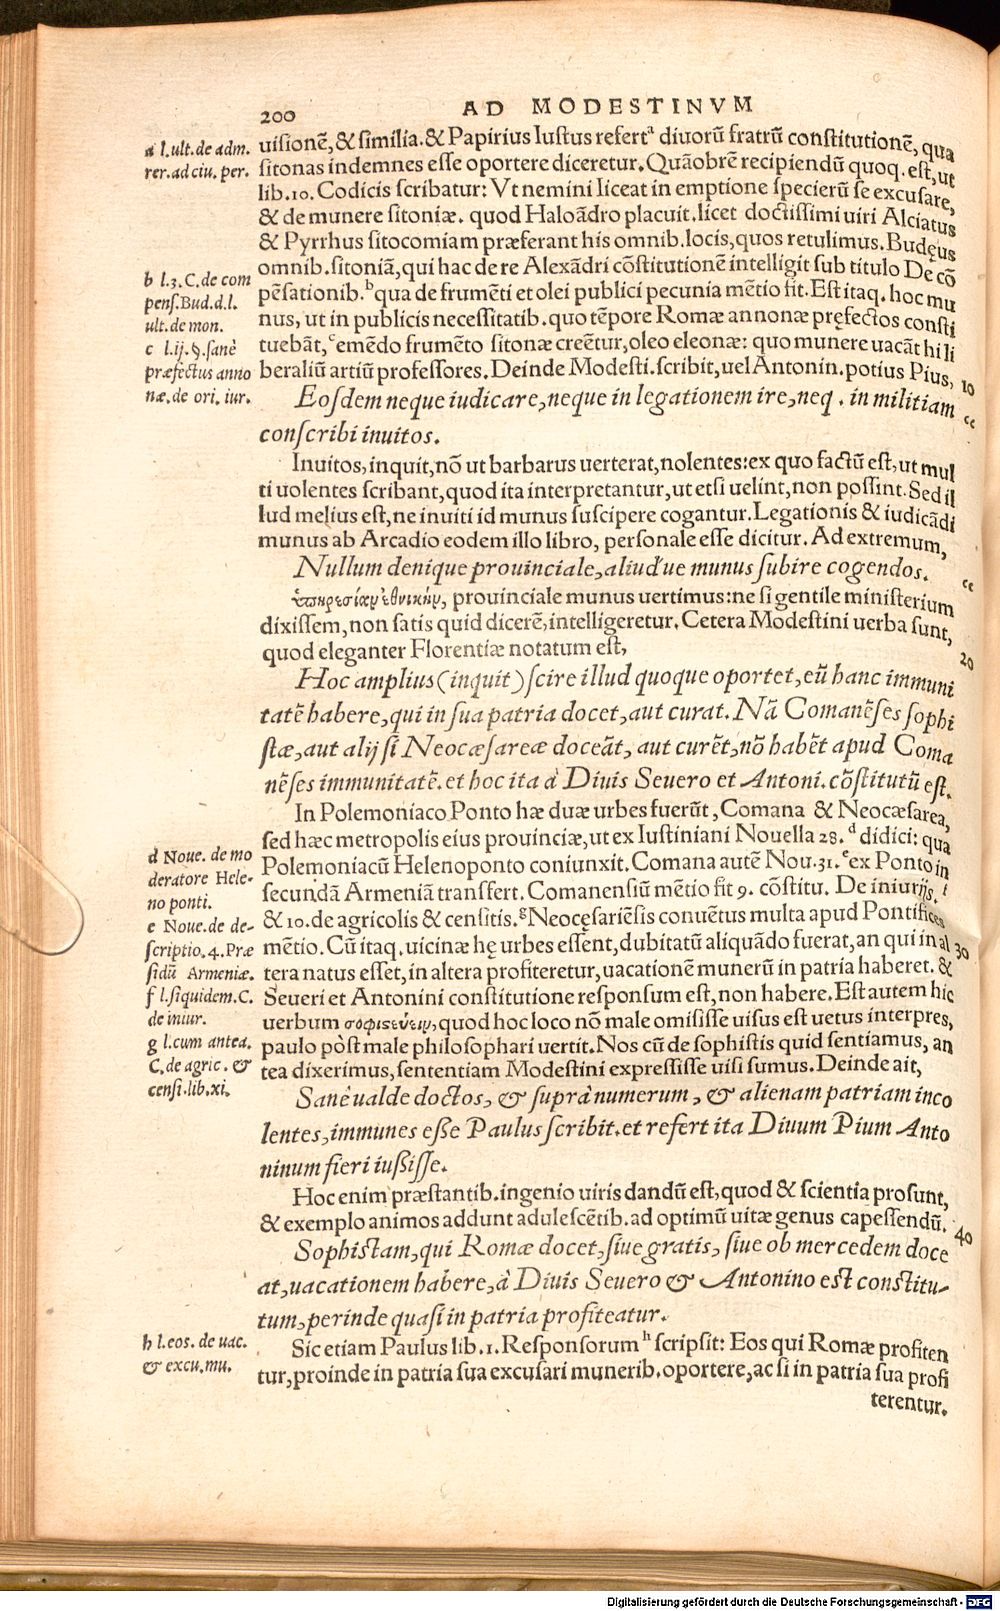 200
AD MODESTINVM
uisionē, & similia. & Papirius Iustus refertᵃ diuorū fratrū constitutionē, qua
sitonas indemnes esse oportere diceretur. Quāobrē recipiendū quoq. est, ut
lib. 10. Codicis scribatur: Vt nemini liceat in emptione specierū se excusare,
& de munere sitoniæ. quod Haloādro placuit. licet doctissimi uiri Alciatus
& Pyrrhus sitocomiam præferant his omnib. locis, quos retulimus. Budęus
omnib. sitoniā, qui hac de re Alexādri cōstitutionē intelligit sub titulo De cō
pēsationib.ᵇ qua de frumēti et olei publici pecunia mētio fit. Est itaq. hoc mu
nus, ut in publicis necessitatib. quo tēpore Romæ annonæ pręfectos consti
tuebāt,ᶜ emēdo frumēto sitonæ creētur, oleo eleonæ: quo munere uacāt hi li
beraliū artiū professores. Deinde Modesti. scribit, uel Antonin. potius Pius,
Eosdem neque iudicare, neque in legationem ire, neq. in militiam
conscribi inuitos.
Inuitos, inquit, nō ut barbarus uerterat, nolentes: ex quo factū est, ut mul
ti uolentes scribant, quod ita interpretantur, ut etsi uelint, non possint. Sed il
lud melius est, ne inuiti id munus suscipere cogantur. Legationis & iudicādi
munus ab Arcadio eodem illo libro, personale esse dicitur. Ad extremum,
Nullum denique prouinciale, aliud'ue munus subire cogendos.
ὑπηρεσίαν ἐθνικὴν, prouinciale munus uertimus: ne si gentile ministerium
dixissem, non satis quid dicerē, intelligeretur. Cetera Modestini uerba sunt,
quod eleganter Florentiæ notatum est,
Hoc amplius (inquit) scire illud quoque oportet, eū hanc immuni
tatē habere, qui in sua patria docet, aut curat. Nā Comanēses sophi
stæ, aut alij si Neocæsareæ doceāt, aut curēt, nō habēt apud Coma
nēses immunitatē. et hoc ita à Diuis Seuero et Antoni. cōstitutū est.
In Polemoniaco Ponto hæ duæ urbes fuerūt, Comana & Neocæsarea,
sed hæc metropolis eius prouinciæ, ut ex Iustiniani Nouella 28.ᵈ didici: qua
Polemoniacū Helenoponto coniunxit. Comana autē Nou. 31.ᵉ ex Ponto in
secundā Armeniā transfert. Comanensiū mētio fit 9. cōstitu. De iniurijs.ᶠ
& 10. de agricolis & censitis.ᵍ Neocęsariēsis conuētus multa apud Pontifices
mētio. Cū itaq. uicinæ hę urbes essent, dubitatū aliquādo fuerat, an qui in al
tera natus esset, in altera profiteretur, uacationē munerū in patria haberet. &
Seueri et Antonini constitutione responsum est, non habere. Est autem hic
uerbum σοφιστεύειν, quod hoc loco nō male omisisse uisus est uetus interpres,
paulo pòst male philosophari uertit. Nos cū de sophistis quid sentiamus, an
tea dixerimus, sententiam Modestini expressisse uisi sumus. Deinde ait,
Sanè ualde doctos, & suprà numerum, & alienam patriam inco
lentes, immunes esse Paulus scribit. et refert ita Diuum Pium Anto
ninum fieri iussisse.
Hoc enim præstantib. ingenio uiris dandū est, quod & scientia prosunt,
& exemplo animos addunt adulescētib. ad optimū uitæ genus capessendū.
Sophistam, qui Romæ docet, siue gratis, siue ob mercedem doce
at, uacationem habere, à Diuis Seuero & Antonino est constitu-
tum, perinde quasi in patria profiteatur.
Sic etiam Paulus lib. 1. Responsorumʰ scripsit: Eos qui Romæ profiten
tur, proinde in patria sua excusari munerib. oportere, ac si in patria sua profi
terentur.
a l. ult. de adm.
rer. ad ciu. per.
b l. 3. C. de com
pens. Bud. d. l.
ult. de mon.
c l. ij. §. sanè
præfectus anno
næ. de ori. iur.
d Noue. de mo
deratore Hele-
noponti.
e Noue. de de-
scriptio. 4. Præ
sidū Armeniæ.
f l. siquidem. C.
de iniur.
g l. cum antea.
C. de agric. &
censi. lib. xi.
h l. eos. de uac.
& excu. mu.
10
cc
cc
20
30
40
Digitalisierung gefördert durch die Deutsche Forschungsgemeinschaft - DFG